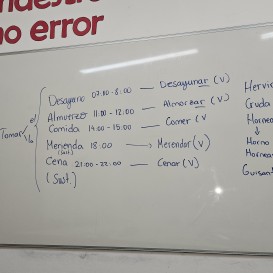 no error
Desayuno 07:00 - 8:00 — Desayunar (V)
Almuerzo 11:00 - 12:00 — Almorzar (V)
Comida 14:00 - 15:00 — Comer (V
Tomar el/la
Merienda 18:00 → Merendar (V)
Cena 21:00 - 22:00 — Cenar (V)
(Sust.)
Hervi
Cruda
Hornea
Horno
Hornea
Guisan